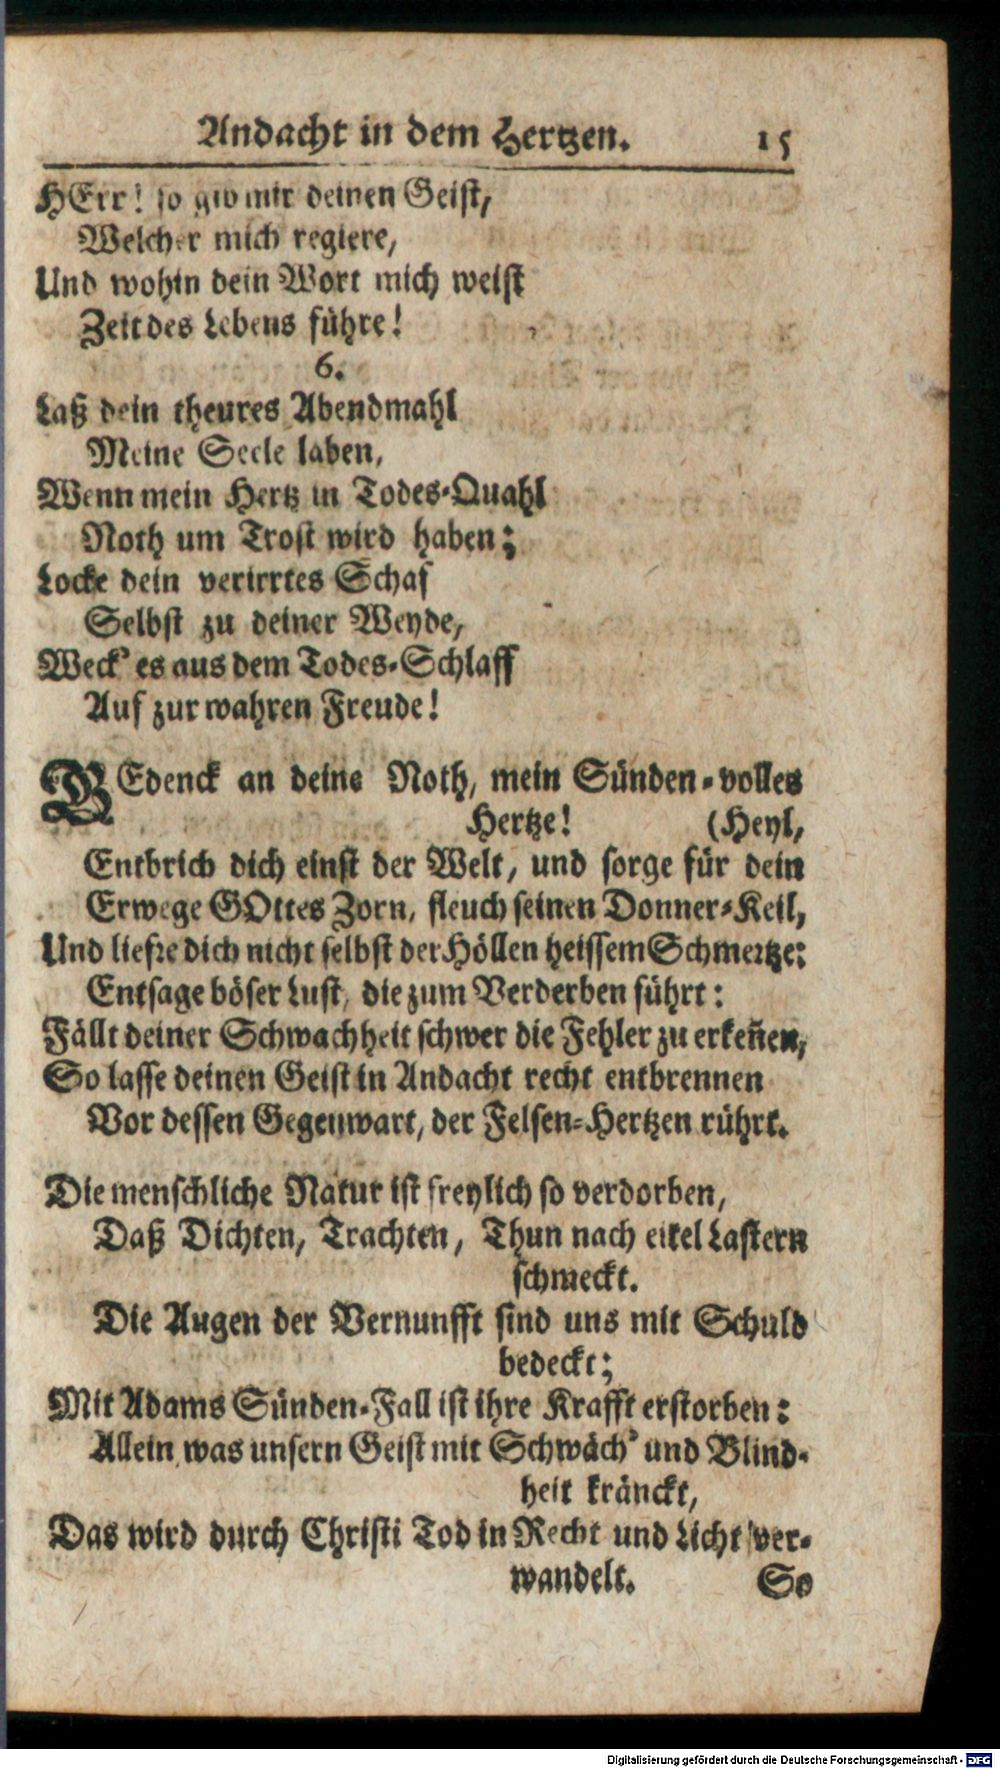 Andacht in dem Hertzen. 15
HErr! so gib mir deinen Geist,
Welcher mich regiere,
Und wohin dein Wort mich weist
Zeit des Lebens führe!
6.
Laß dein theures Abendmahl
Meine Seele laben,
Wenn mein Hertz in Todes-Quahl
Noth um Trost wird haben;
Locke dein verirrtes Schaf
Selbst zu deiner Weyde,
Weck' es aus dem Todes-Schlaff
Auf zur wahren Freude!
BEdenck an deine Noth, mein Sünden-volles
Hertze! (Heyl,
Entbrich dich einst der Welt, und sorge für dein
Erwege GOttes Zorn, fleuch seinen Donner-Keil,
Und liefre dich nicht selbst der Höllen heissem Schmertze:
Entsage böser Lust, die zum Verderben führt:
Fällt deiner Schwachheit schwer die Fehler zu erkeñen,
So lasse deinen Geist in Andacht recht entbrennen
Vor dessen Gegenwart, der Felsen-Hertzen rührt.
Die menschliche Natur ist freylich so verdorben,
Daß Dichten, Trachten, Thun nach eitel Lastern
schmeckt.
Die Augen der Vernunfft sind uns mit Schuld
bedeckt;
Mit Adams Sünden-Fall ist ihre Krafft erstorben:
Allein was unsern Geist mit Schwäch' und Blind-
heit kränckt,
Das wird durch Christi Tod in Recht und Licht ver-
wandelt. So
Digitalisierung gefördert durch die Deutsche Forschungsgemeinschaft - DFG